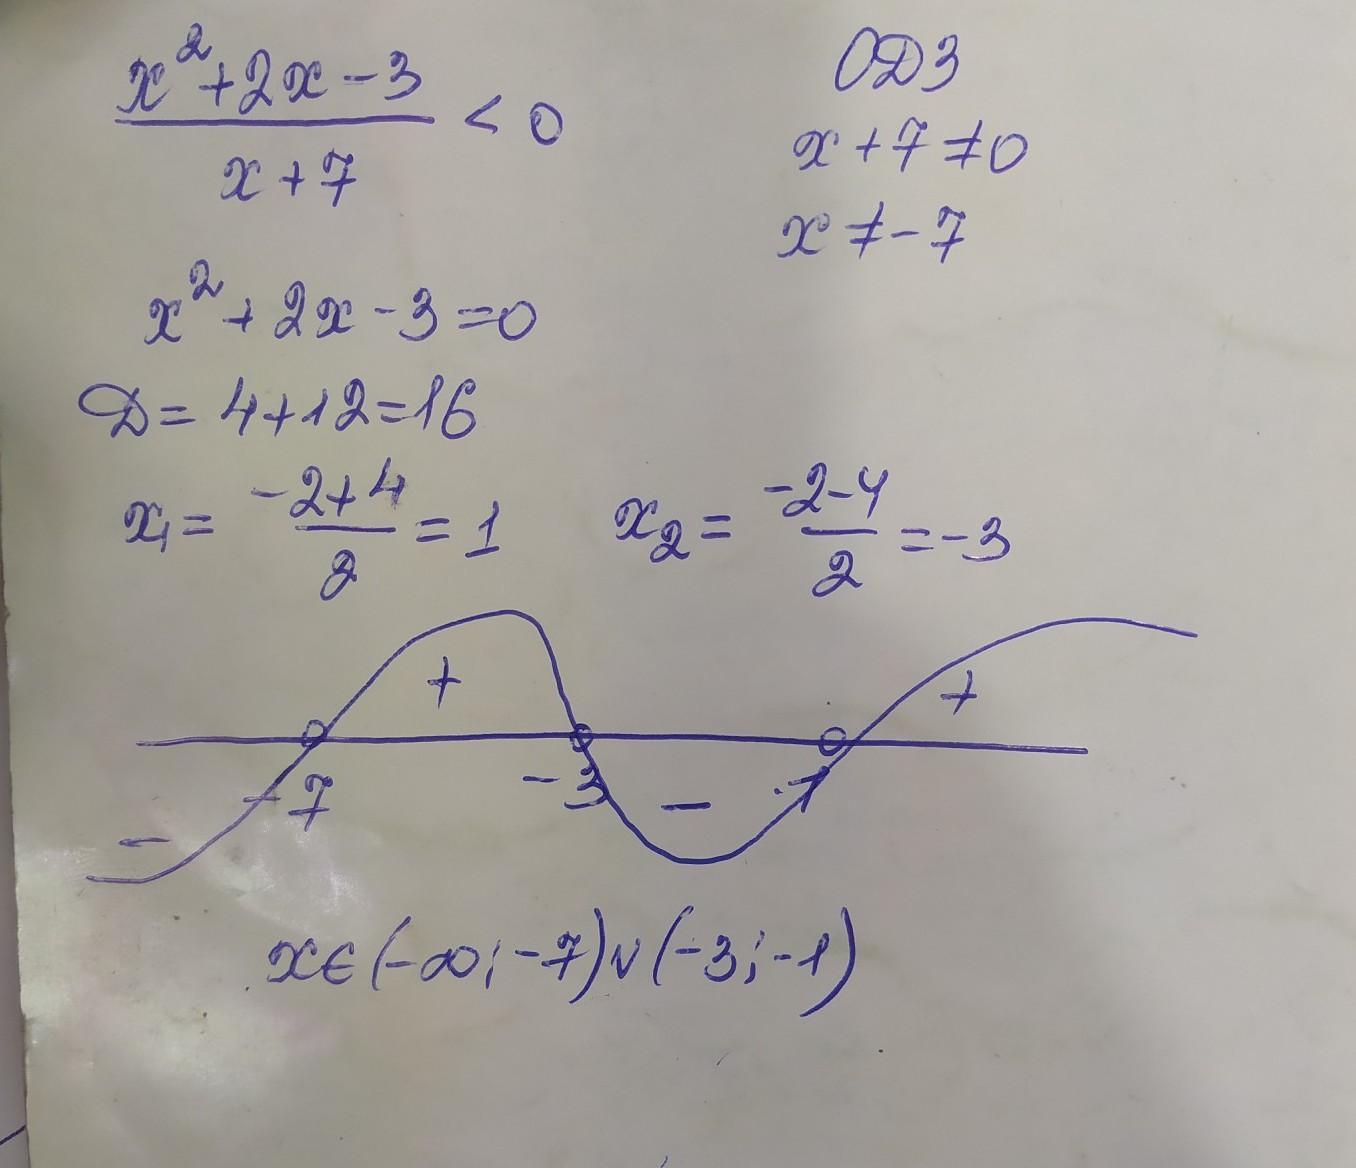 x²+2x-3
───── < 0
x+7
ОДЗ
x+7≠0
x≠-7
x²+2x-3=0
Д=4+12=16
x₁= (-2+4)/2 =1
x₂= (-2-4)/2 =-3
+ +
-7 -3 - 1
-
x∈(-∞;-7)∪(-3;-1)